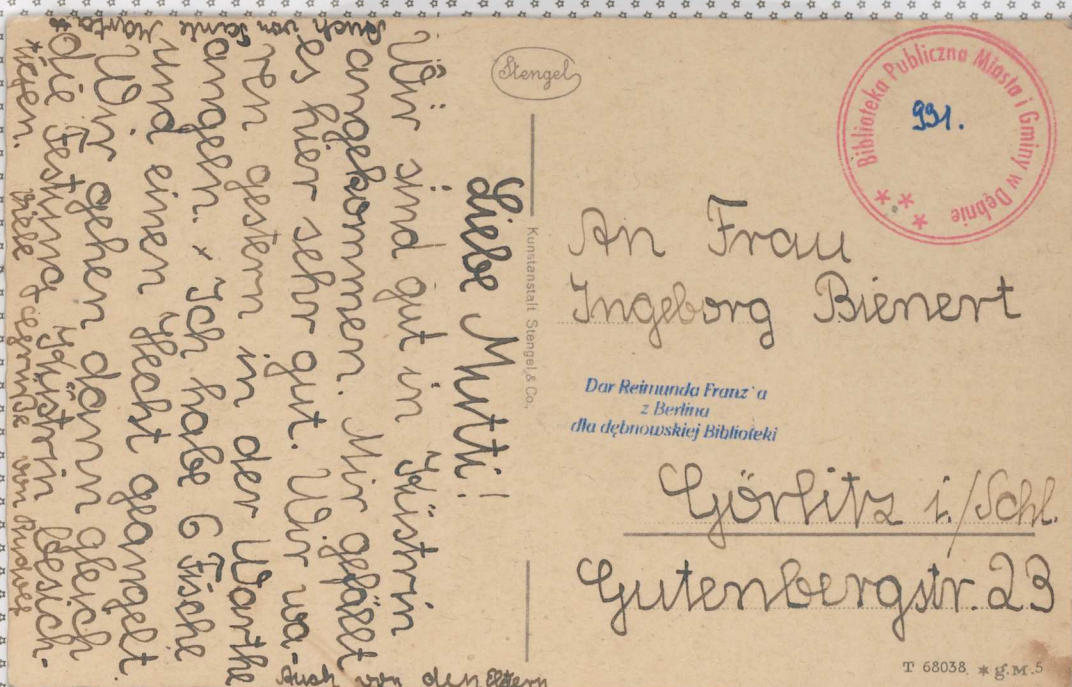 Liebe Mutti!
Wir sind gut in Küstrin
angekommen. Mir gefällt
es hier sehr gut. Wir wa-
ren gestern in der Warthe
angeln. × Ich habe 6 Fische
und einen Hecht geangelt.
Wir gehen dann gleich
die Festung Küstrin besich-
tigen.
Viele
von
Auch von
Auch von den Eltern
Stengel
Kunstanstalt Stengel & Co.,
Biblioteka Publiczna Miasta i Gminy w Dębnie
991.
An Frau
Ingeborg Bienert
Dar Reimunda Franz'a
z Berlina
dla dębnowskiej Biblioteki
Görlitz i./Schl.
Gutenbergstr. 23
T 68038 * g.M.5